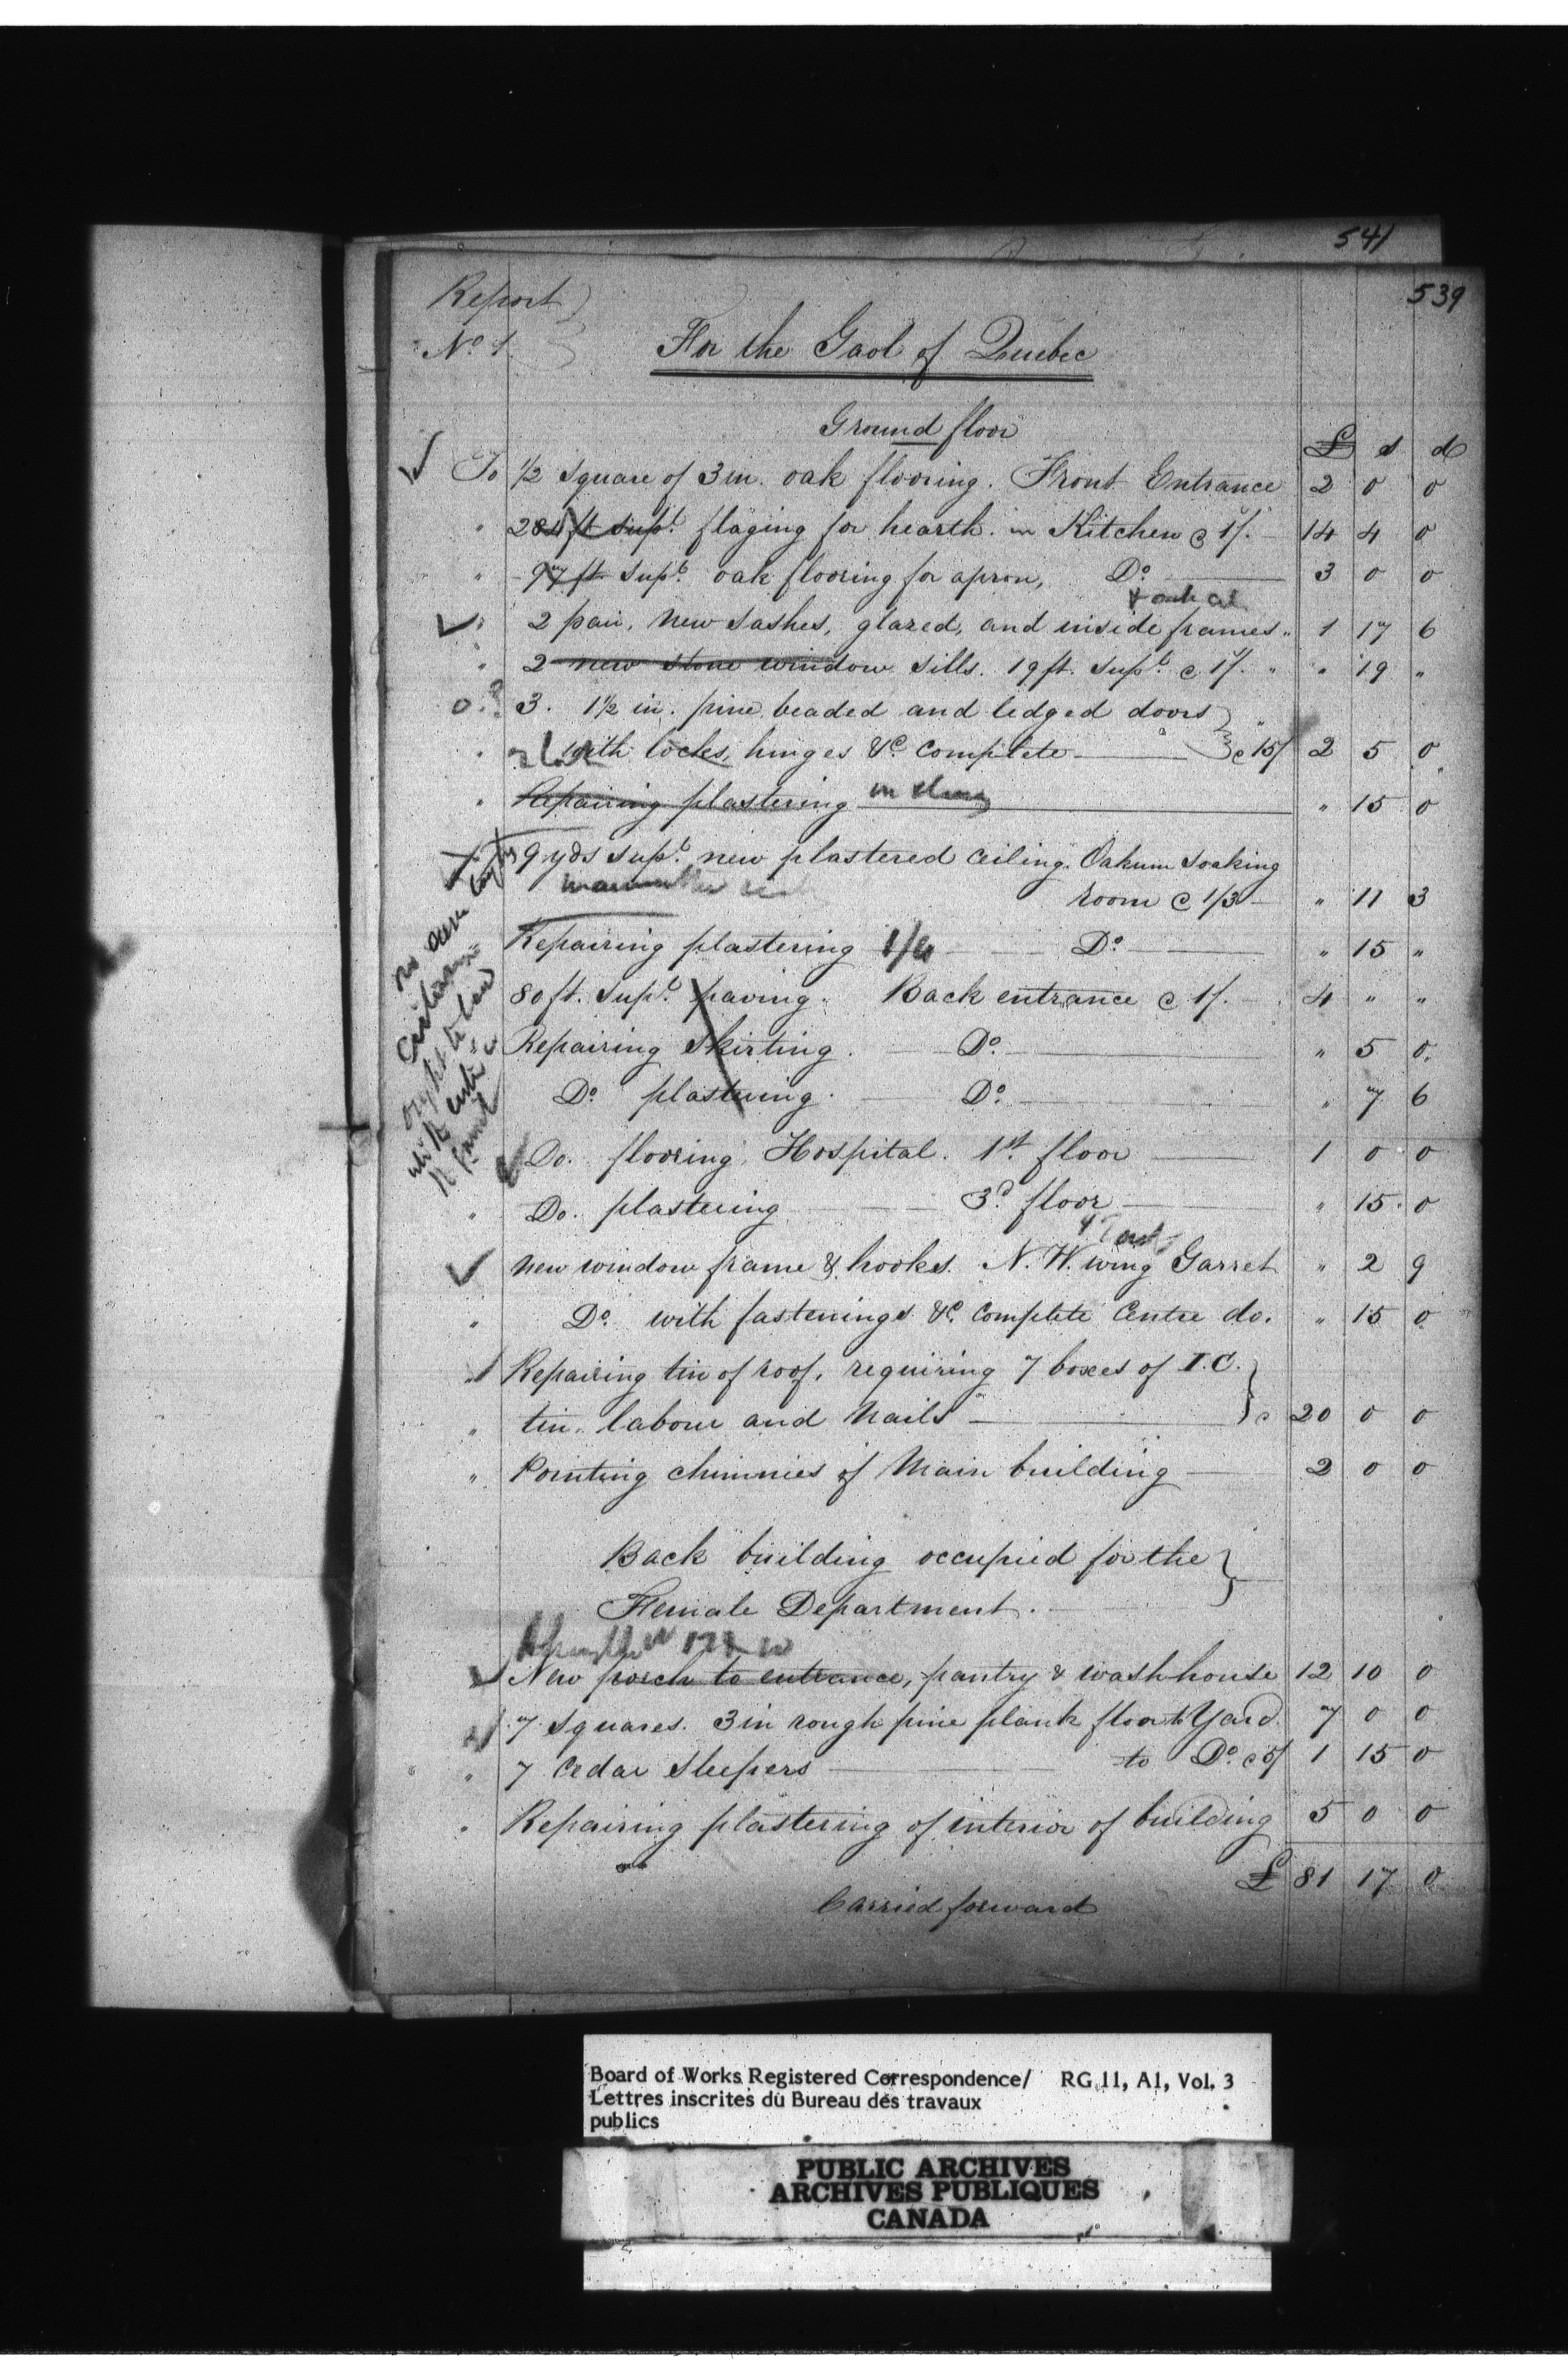 541
539
Report
No. 1
For the Gaol of Quebec
Ground floor
£ s d
To 1/2 square of 3 in. oak flooring. Front Entrance 2 0 0
" 284 ft supl. flaging for hearth in Kitchen @ 1/. 14 4 0
" 97 ft supl. oak flooring for apron, Do. 3 0 0
" 2 pair, new sashes, glazed, and inside frames " 1 17 6
" 2 new stone window sills. 19 ft. supl. @ 1/. " " 19 "
3. 1 1/2 in. pine beaded and ledged doors "
" with locks, hinges &c. complete @ 15/ 2 5 0
" Repairing plastering " 15 0
9 yds supl. new plastered ceiling. Oakum soaking
room @ 1/3 " 11 3
" Repairing plastering 1/6 Do. " 15 "
80 ft. supl. paving. Back entrance @ 1/. 4 " "
" Repairing skirting. Do. " 5 0
Do. plastering. Do. " 7 6
Do. flooring Hospital. 1st. floor 1 0 0
" Do. plastering 3d. floor " 15 0
new window frame & hooks. N. W. wing Garret " 2 9
" Do. with fastenings &c. complete Centre do. " 15 0
" Repairing tin of roof, requiring 7 boxes of I.C.
" tin, labour and nails @ 20 0 0
" Pointing chimnies of Main building 2 0 0
Back building occupied for the
Female Department.
" New porch to entrance, pantry & wash house 12 10 0
" 7 squares. 3 in rough pine plank floor to Yard. 7 0 0
" 7 Cedar sleepers to Do. @ 5/ 1 15 0
" Repairing plastering of interior of building 5 0 0
£ 81 17 0
Carried forward
Board of Works Registered Correspondence/ RG 11, A1, Vol. 3
Lettres inscrites du Bureau des travaux
publics
PUBLIC ARCHIVES
ARCHIVES PUBLIQUES
CANADA